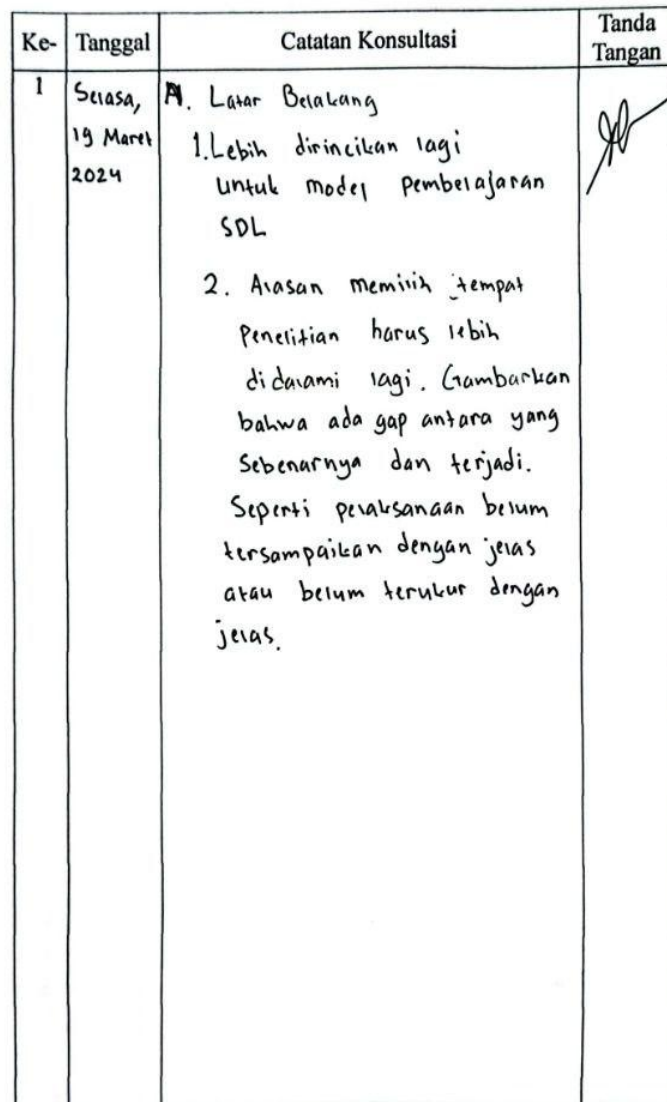 Ke- Tanggal Catatan Konsultasi Tanda Tangan
1 Selasa, A. Latar Belakang
19 Maret 1. Lebih dirincikan lagi
2024 untuk model pembelajaran
SDL
2. Alasan memilih tempat
Penelitian harus lebih
didalami lagi. Gambarkan
bahwa ada gap antara yang
Sebenarnya dan terjadi.
Seperti pelaksanaan belum
tersampaikan dengan jelas
atau belum terukur dengan
jelas.